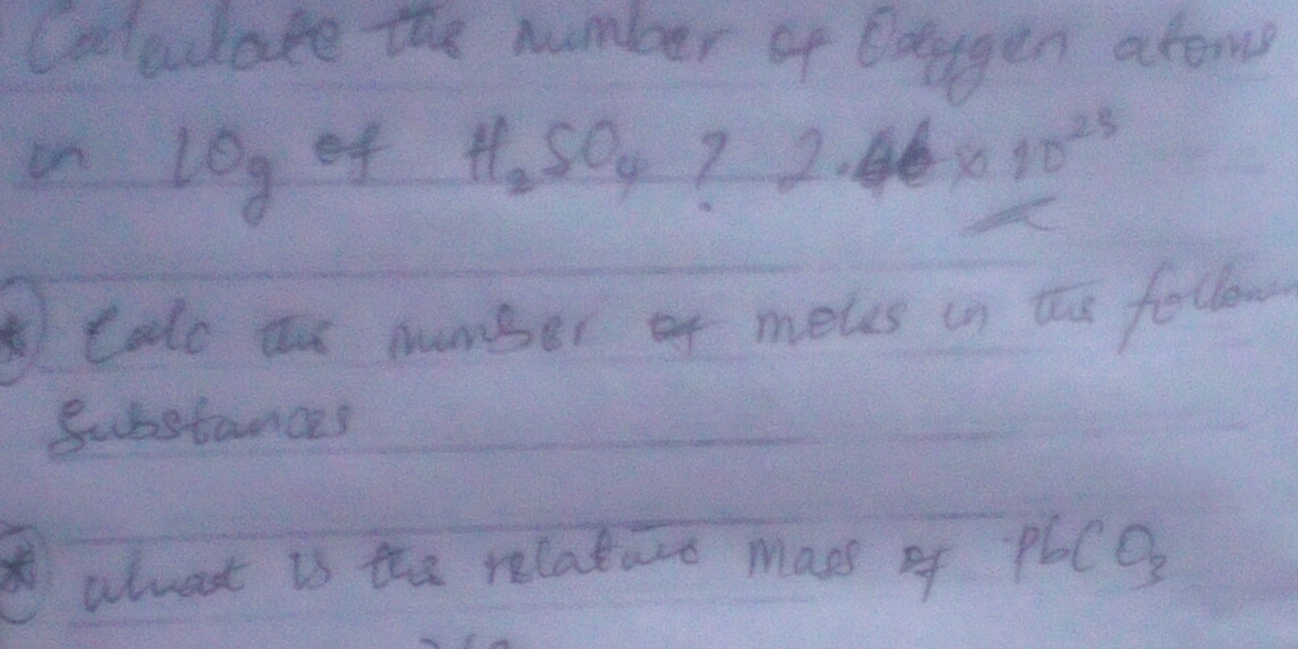 Calculate the number of Oxygen atoms
in 10g of H₂SO₄ ? 2.46 x 10²³
* Calc the number of moles in the follow
Substances
* what is the relative mass of PbCO₃